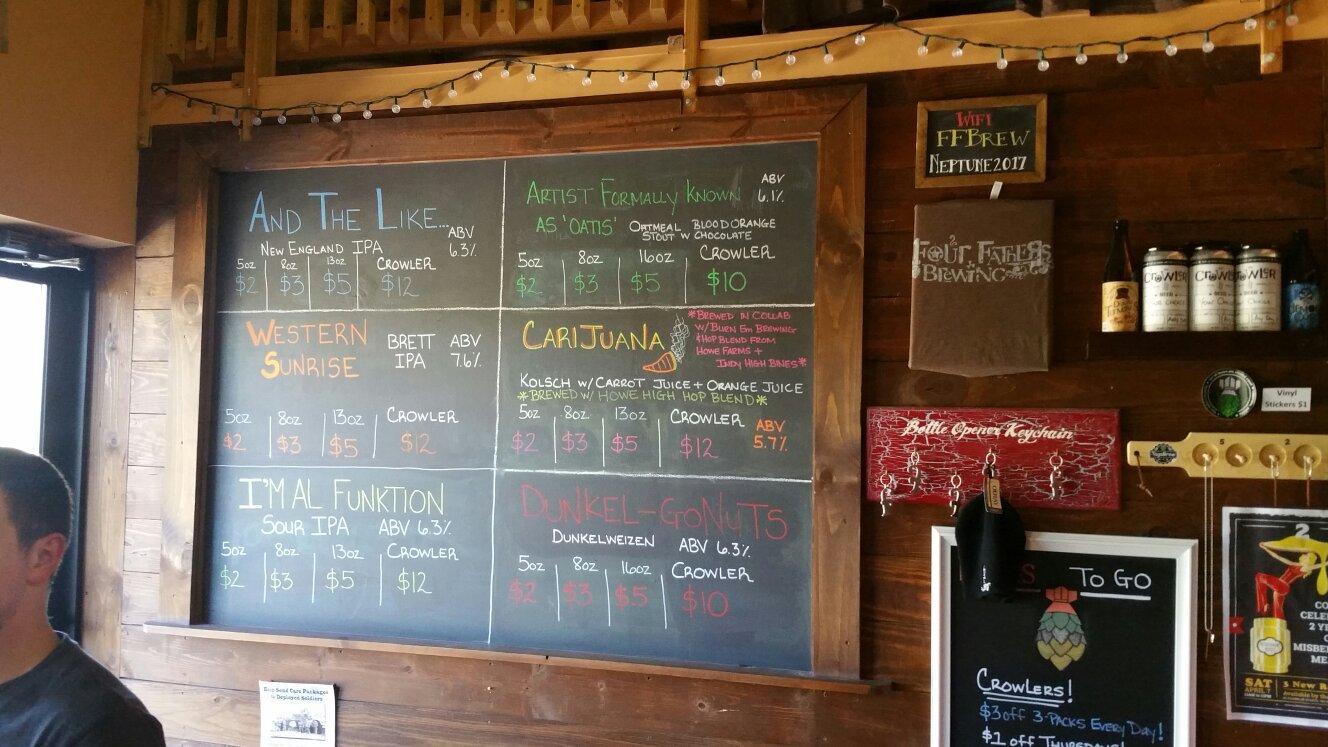 AND THE LIKE...
ABV
6.3%
NEW ENGLAND IPA
5oz 8oz 13oz CROWLER
$2 $3 $5 $12
ARTIST FORMALLY KNOWN
ABV
6.1%
AS 'OATIS' OATMEAL BLOODORANGE
STOUT W CHOCOLATE
5oz 8oz 16oz CROWLER
$2 $3 $5 $10
WESTERN
SUNRISE
BRETT
IPA
ABV
7.6%
5oz 8oz 13oz CROWLER
$2 $3 $5 $12
CARIJUANA
*BREWED IN COLLAB
W/BURN EM BREWING
HOP BLEND FROM
HOWE FARMS +
INDY HIGH BINES*
KOLSCH W/CARROT JUICE + ORANGE JUICE
*BREWED W/ HOWE HIGH HOP BLEND*
5oz 8oz 13oz CROWLER
$2 $3 $5 $12
ABV
5.7%
I'M AL FUNKTION
SOUR IPA ABV 6.3%
5oz 8oz 13oz CROWLER
$2 $3 $5 $12
DUNKEL-GONUTS
DUNKELWEIZEN ABV 6.3%
5oz 8oz 16oz CROWLER
$2 $3 $5 $10
WIFI
FFBREW
NEPTUNE2017
2
FOUR FATHERS
BREWING
CROWLER
CROWLER
CROWLER
Vinyl
Stickers $1
Bottle Opener Keychain
5 2
TO GO
CROWLERS!
$3 off 3-PACKS EVERY DAY!
$1 off THURSDAYS!
Help Send Care Packages
to Deployed Soldiers
2
SAT
APRIL 7